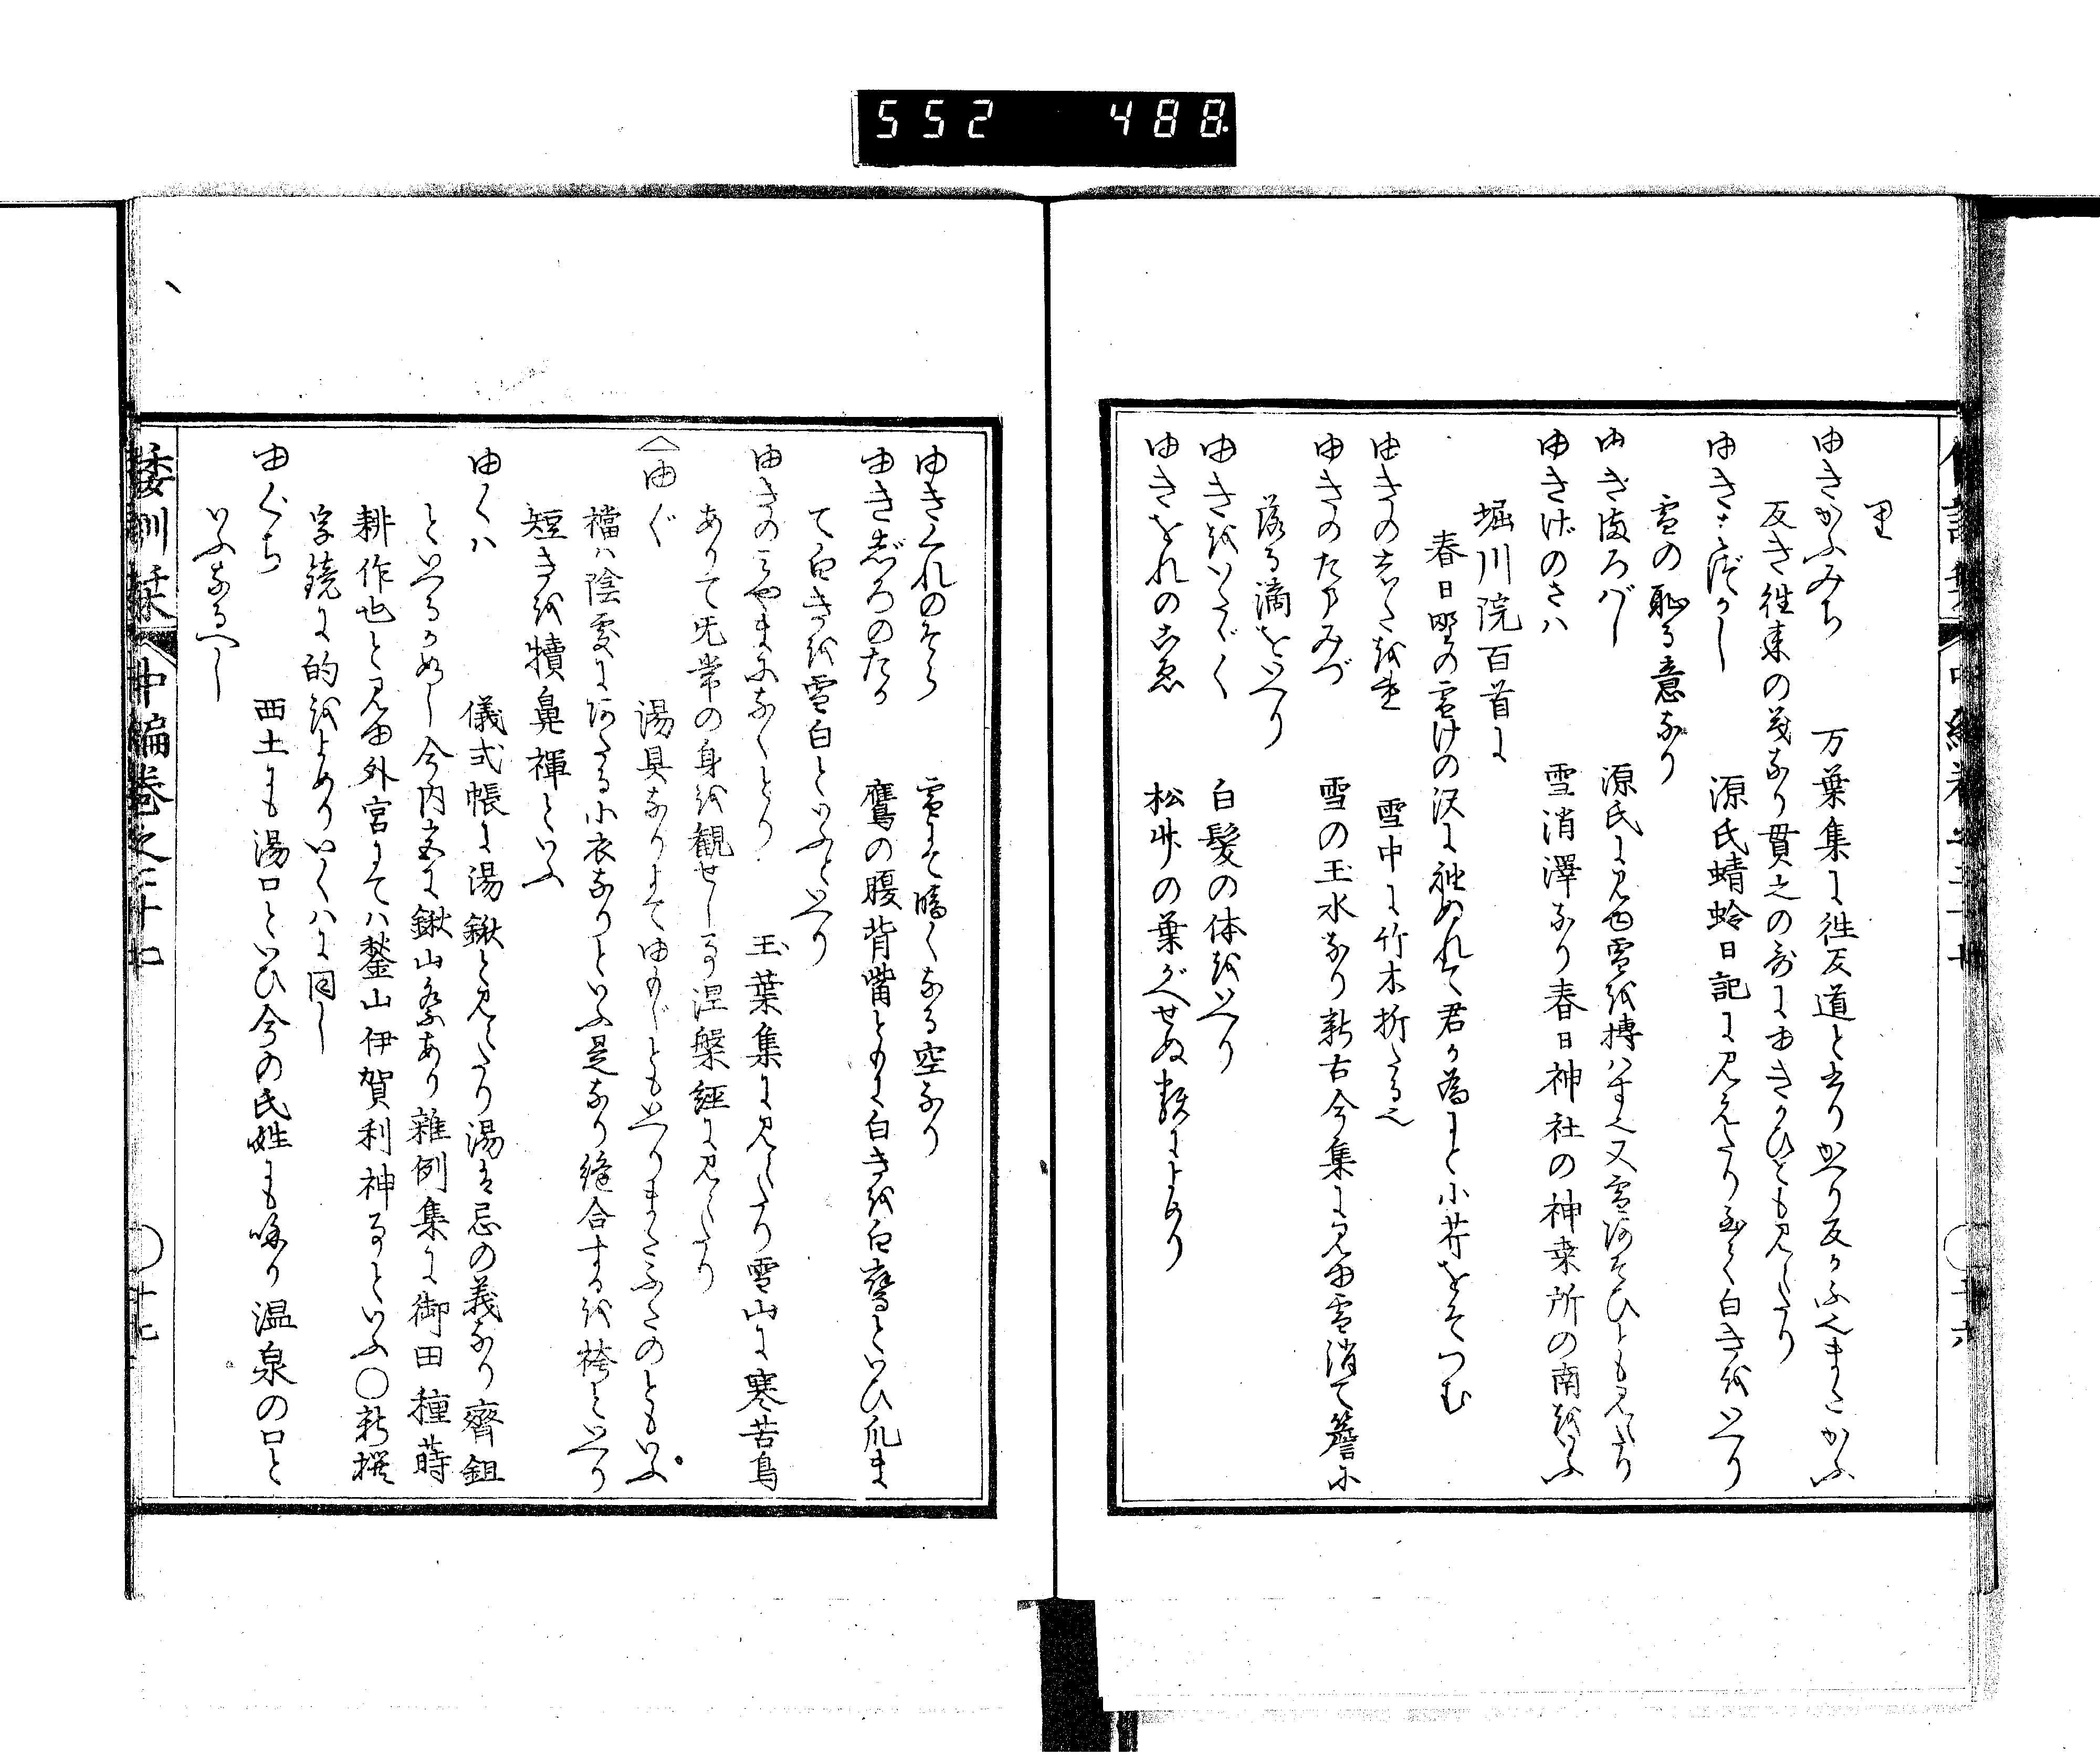 552 488
里
ゆきかふみち 万葉集に往反道と書りかへり反りかふ也またかふ
反き往来の義なり貫之の哥にゆきかひとも見えたり
ゆきはづかし 源氏蜻蛉日記に見えたり至て白きをいへり
雪の恥る意なり
ゆきまろばし 源氏に見ゆ雪を摶はす也又雪あそひとも見えたり
ゆきげのさハ 雪消澤なり春日神社の神楽所の南をいふ
堀川院百首に
春日野の雪けの沢に袖ぬれて君か為にと小芹をそつむ
ゆきのしたをれ 雪中に竹木折たる也
ゆきのたまみづ 雪の玉水なり新古今集に見ゆ雪消て簷に
落る滴をいへり
ゆきをいたゞく 白髪の体をいへり
ゆきをれのこゑ 松竹の葉がへせぬ類によめり
ゆきくれのそら 雪にて暗くなる空なり
ゆきじろのたか 鷹の腹背觜ともに白きを白鷹といひ爪ま
て白きを雪白といふといへり
ゆきのみやまになくとり 玉葉集に見えたり雪山に寒苦鳥
ありて无常の身を観せし事涅槃経に見えたり
ゆぐ 湯具なりよてゆもじともいへりまたふたのともいふ
襠ハ陰處にあたる小衣なりといふ是なり縫合するを袴といへり
短きを犢鼻褌といふ
ゆくハ 儀式帳に湯鍬と見えたり湯は忌の義なり齊鉏
といへるかめし今内宮に鍬山祭あり雜例集に御田種蒔
耕作也と見ゆ外宮にてハ鍫山伊賀利神事といふ〇新撰
字鏡に的をよめりいくハに同し
ゆぐち 西土にも湯口といひ今の氏姓にも呼り温泉の口と
いふなるへし
倭訓栞 中編巻之二十七 〇 廿七